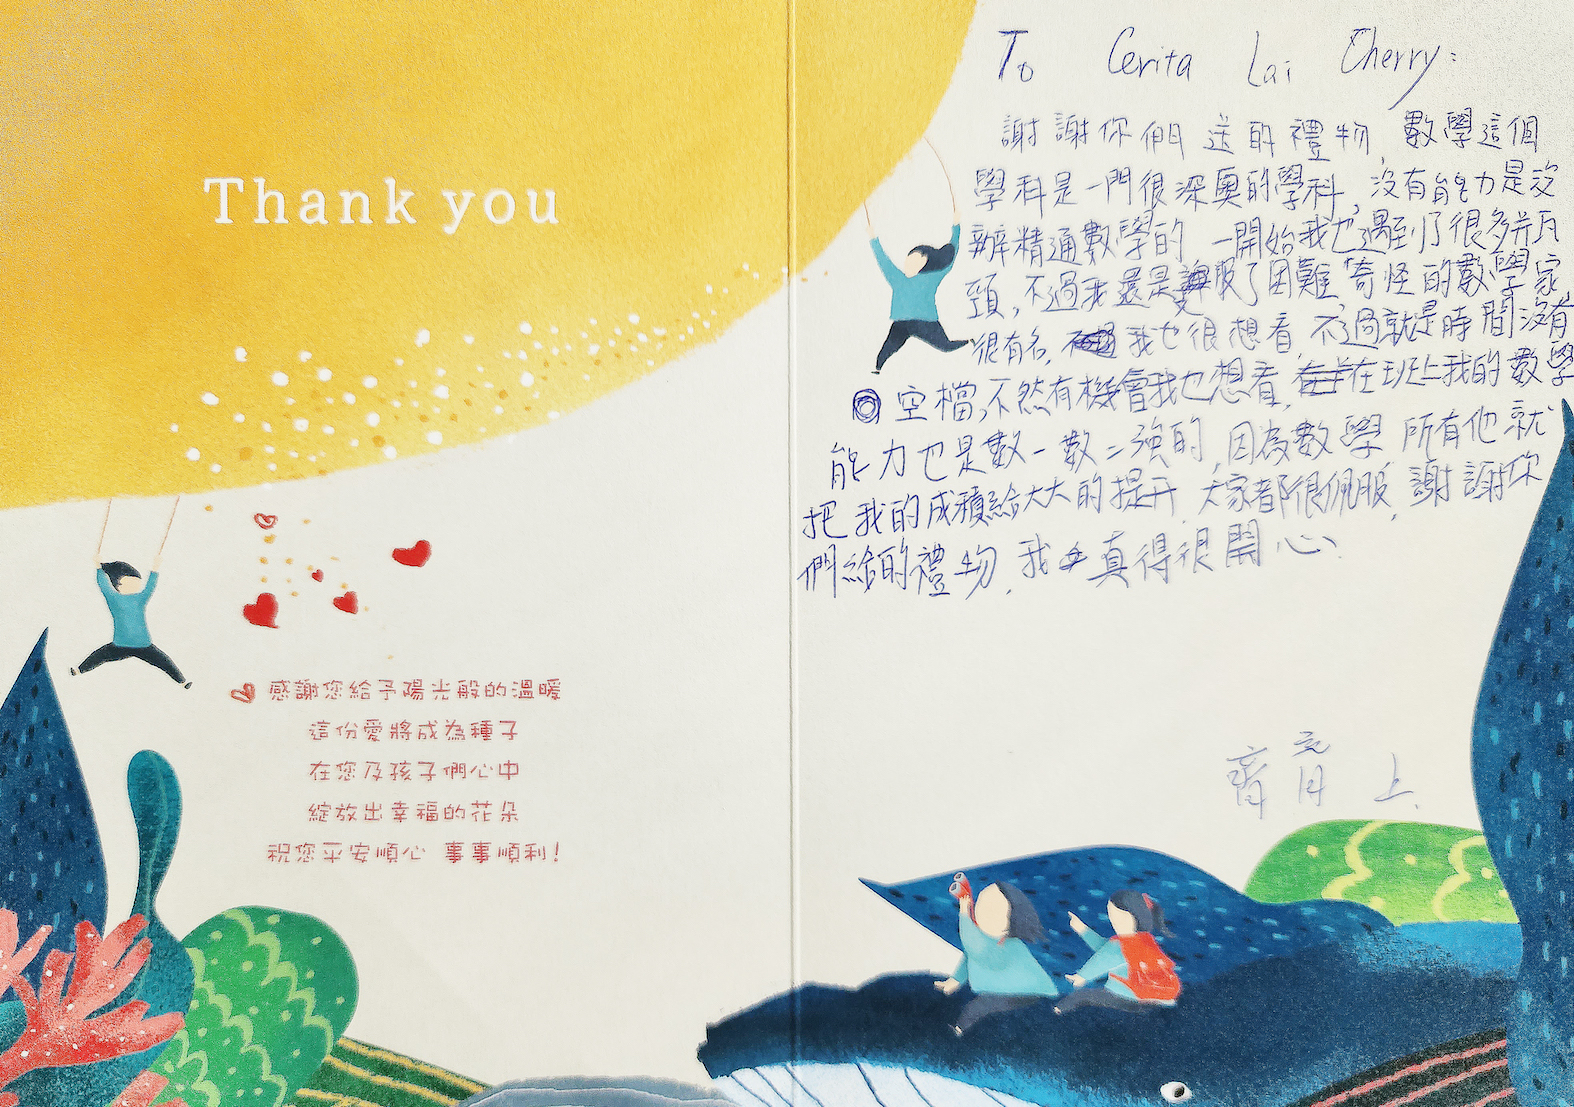 Thank you
感謝您給予陽光般的溫暖
這份愛將成為種子
在您及孩子們心中
綻放出幸福的花朵
祝您平安順心 事事順利!
To Cerita Lai Cherry:
謝謝你們送的禮物,數學這個
學科是一門很深奧的學科,沒有能力是沒
辦精通數學的,一開始我也遇到了很多瓶
頸,不過我還是服了困難,奇怪的數學家
很有名,我也很想看,不過就是時間沒有
空檔,不然有機會我也想看,在班上我的數學
能力也是數一數二強的,因為數學 所有他就
把我的成積給大大的提升,大家都很佩服,謝謝你
們給的禮物,我真得很開心
上